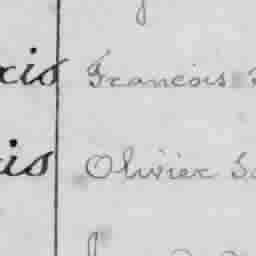 xis François
is Olivier